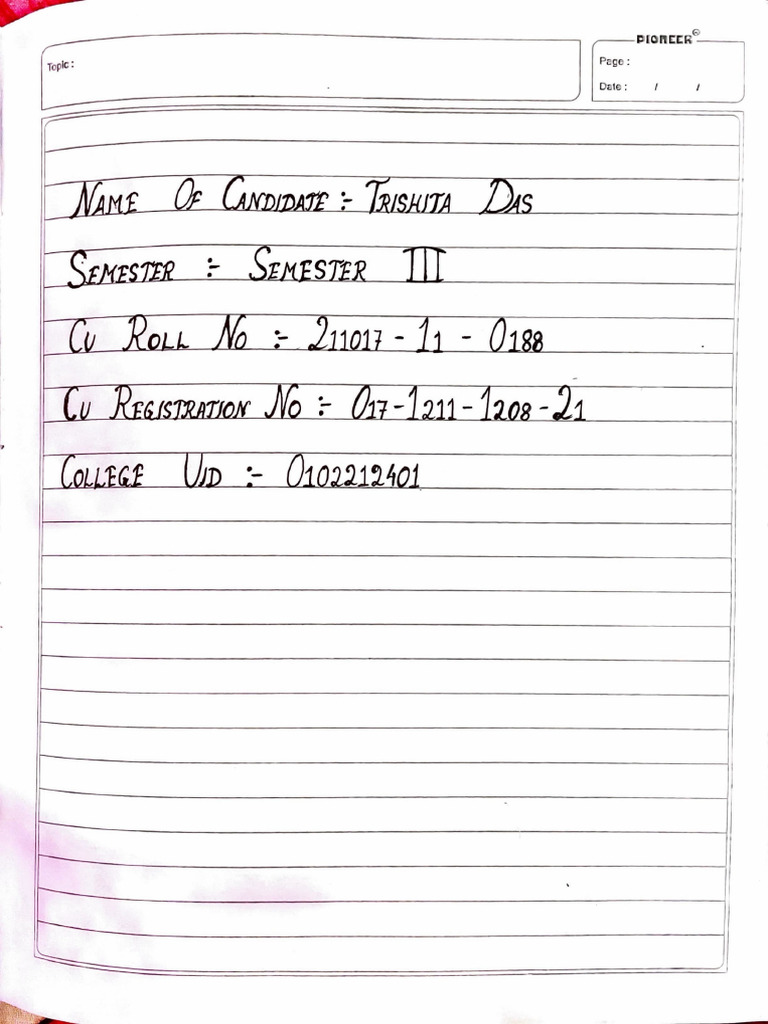 PIONEER®
Topic :
Page :
Date : / /
NAME OF CANDIDATE :- TRISHITA DAS
SEMESTER :- SEMESTER III
CU ROLL NO :- 211017 - 11 - 0188
CU REGISTRATION NO :- 017-1211-1208-21
COLLEGE UID :- 0102212401